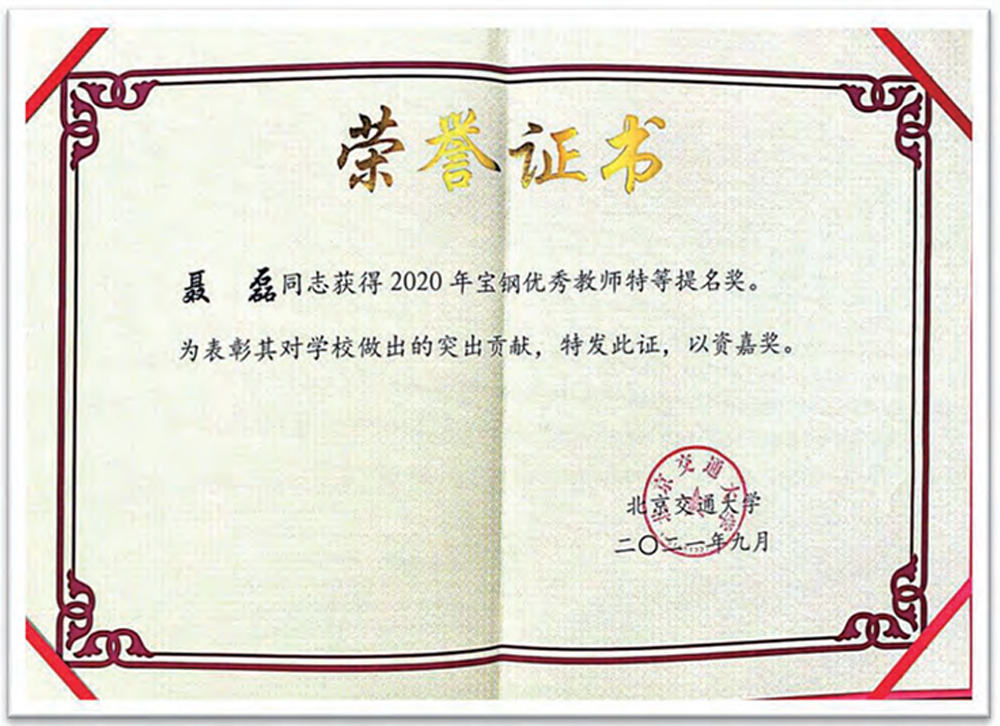 荣誉证书
聂 磊同志获得 2020 年宝钢优秀教师特等提名奖。
为表彰其对学校做出的突出贡献，特发此证，以资嘉奖。
北京交通大学
北京交通大学
二〇二一年九月